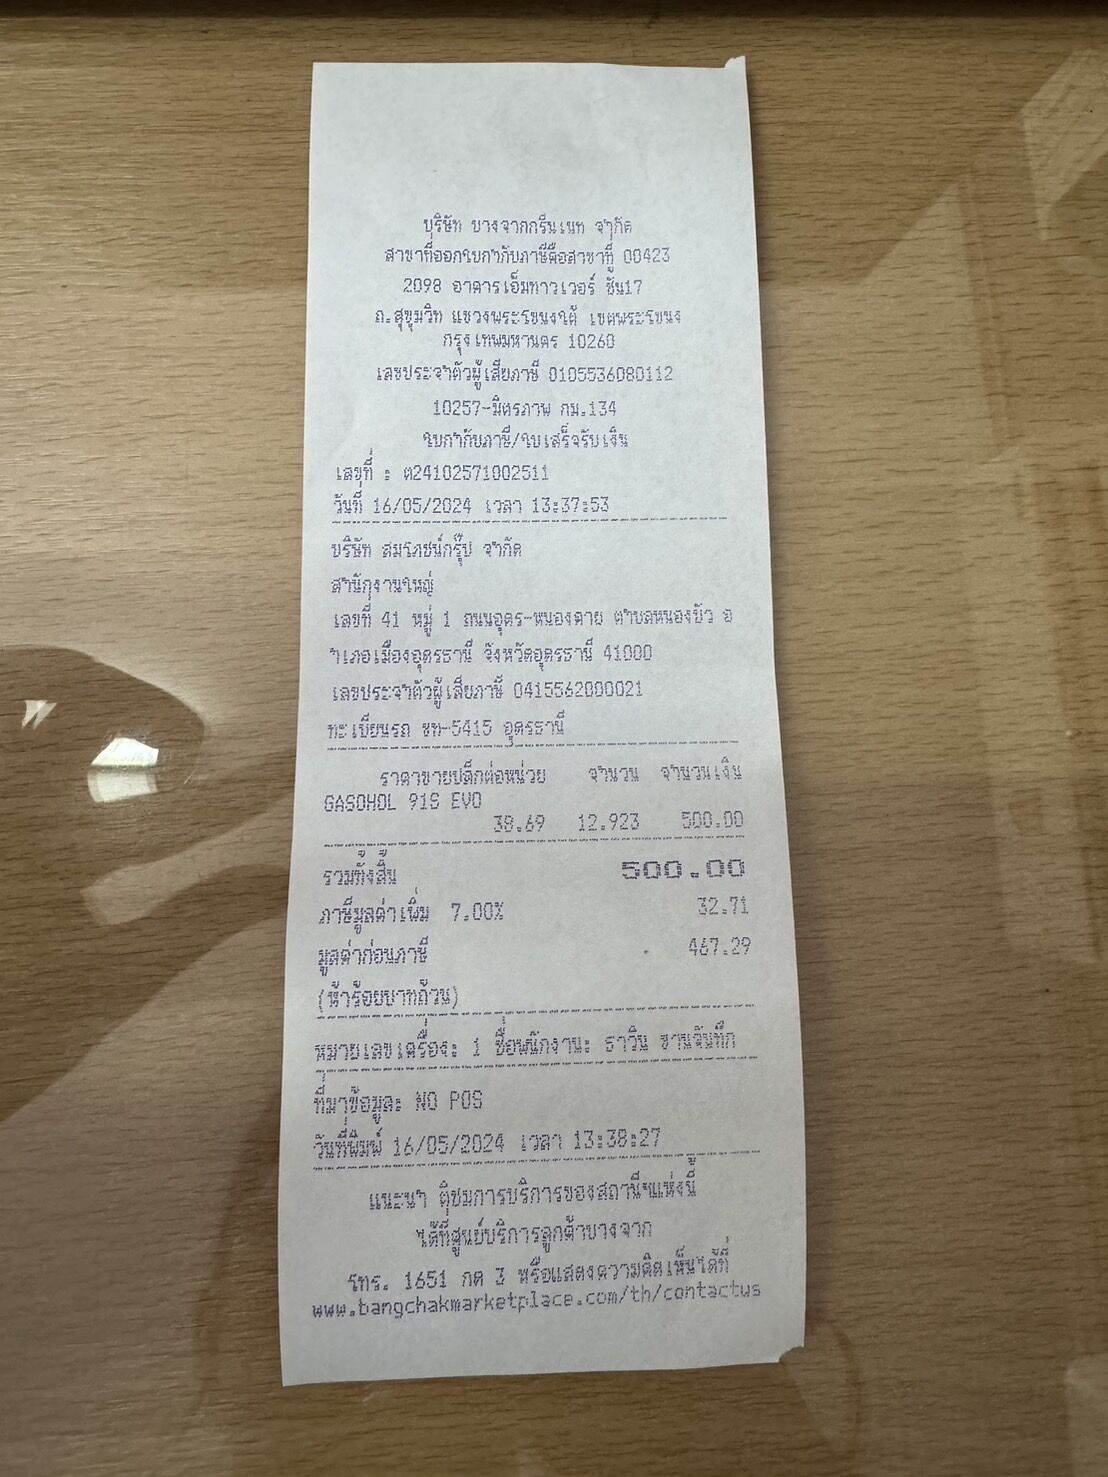 บริษัท บางจากกรีนเนท จำกัด
สาขาที่ออกใบกำกับภาษีคือสาขาที่ 00423
2098 อาคารเอ็มทาวเวอร์ ชั้น17
ถ.สุขุมวิท แขวงพระโขนงใต้ เขตพระโขนง
กรุงเทพมหานคร 10260
เลขประจำตัวผู้เสียภาษี 0105536080112
10257-มิตรภาพ กม.134
ใบกำกับภาษี/ใบเสร็จรับเงิน
เลขที่ : ต24102571002511
วันที่ 16/05/2024 เวลา 13:37:53
บริษัท สมโภชน์กรุ๊ป จำกัด
สำนักงานใหญ่
เลขที่ 41 หมู่ 1 ถนนอุดร-หนองคาย ตำบลหนองบัว อ
ำเภอเมืองอุดรธานี จังหวัดอุดรธานี 41000
เลขประจำตัวผู้เสียภาษี 0415562000021
ทะเบียนรถ ขท-5415 อุดรธานี
ราคาขายปลีกต่อหน่วย จำนวน จำนวนเงิน
GASOHOL 91S EVO
38.69 12.923 500.00
รวมทั้งสิ้น 500.00
ภาษีมูลค่าเพิ่ม 7.00% 32.71
มูลค่าก่อนภาษี 467.29
(ห้าร้อยบาทถ้วน)
หมายเลขเครื่อง: 1 ชื่อพนักงาน: ธาวิน ชานจันทึก
ที่มาข้อมูล: NO POS
วันที่พิมพ์ 16/05/2024 เวลา 13:38:27
แนะนำ ติชมการบริการของสถานีฯแห่งนี้
ได้ที่ศูนย์บริการลูกค้าบางจาก
โทร. 1651 กด 3 หรือแสดงความคิดเห็นได้ที่
www.bangchakmarketplace.com/th/contactus